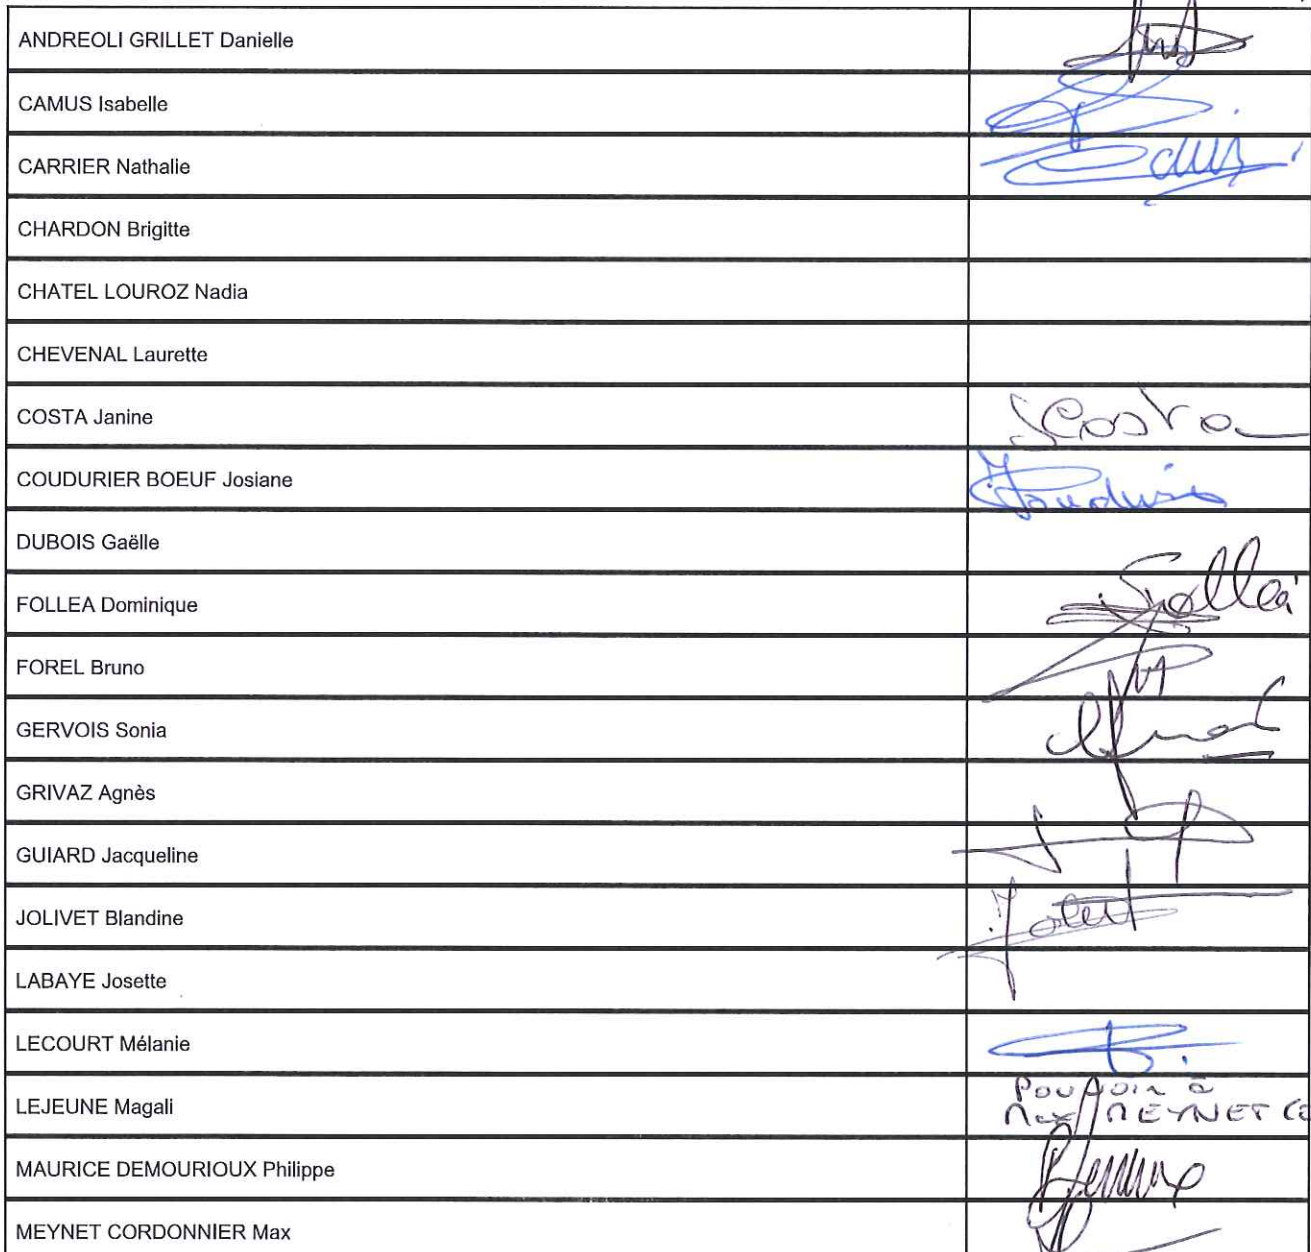 ANDREOLI GRILLET Danielle
CAMUS Isabelle
CARRIER Nathalie
CHARDON Brigitte
CHATEL LOUROZ Nadia
CHEVENAL Laurette
COSTA Janine
JCosta
COUDURIER BOEUF Josiane
DUBOIS Gaëlle
FOLLEA Dominique
FOREL Bruno
GERVOIS Sonia
GRIVAZ Agnès
GUIARD Jacqueline
JOLIVET Blandine
LABAYE Josette
LECOURT Mélanie
LEJEUNE Magali
Pouvoir à
Max MEYNET
MAURICE DEMOURIOUX Philippe
MEYNET CORDONNIER Max